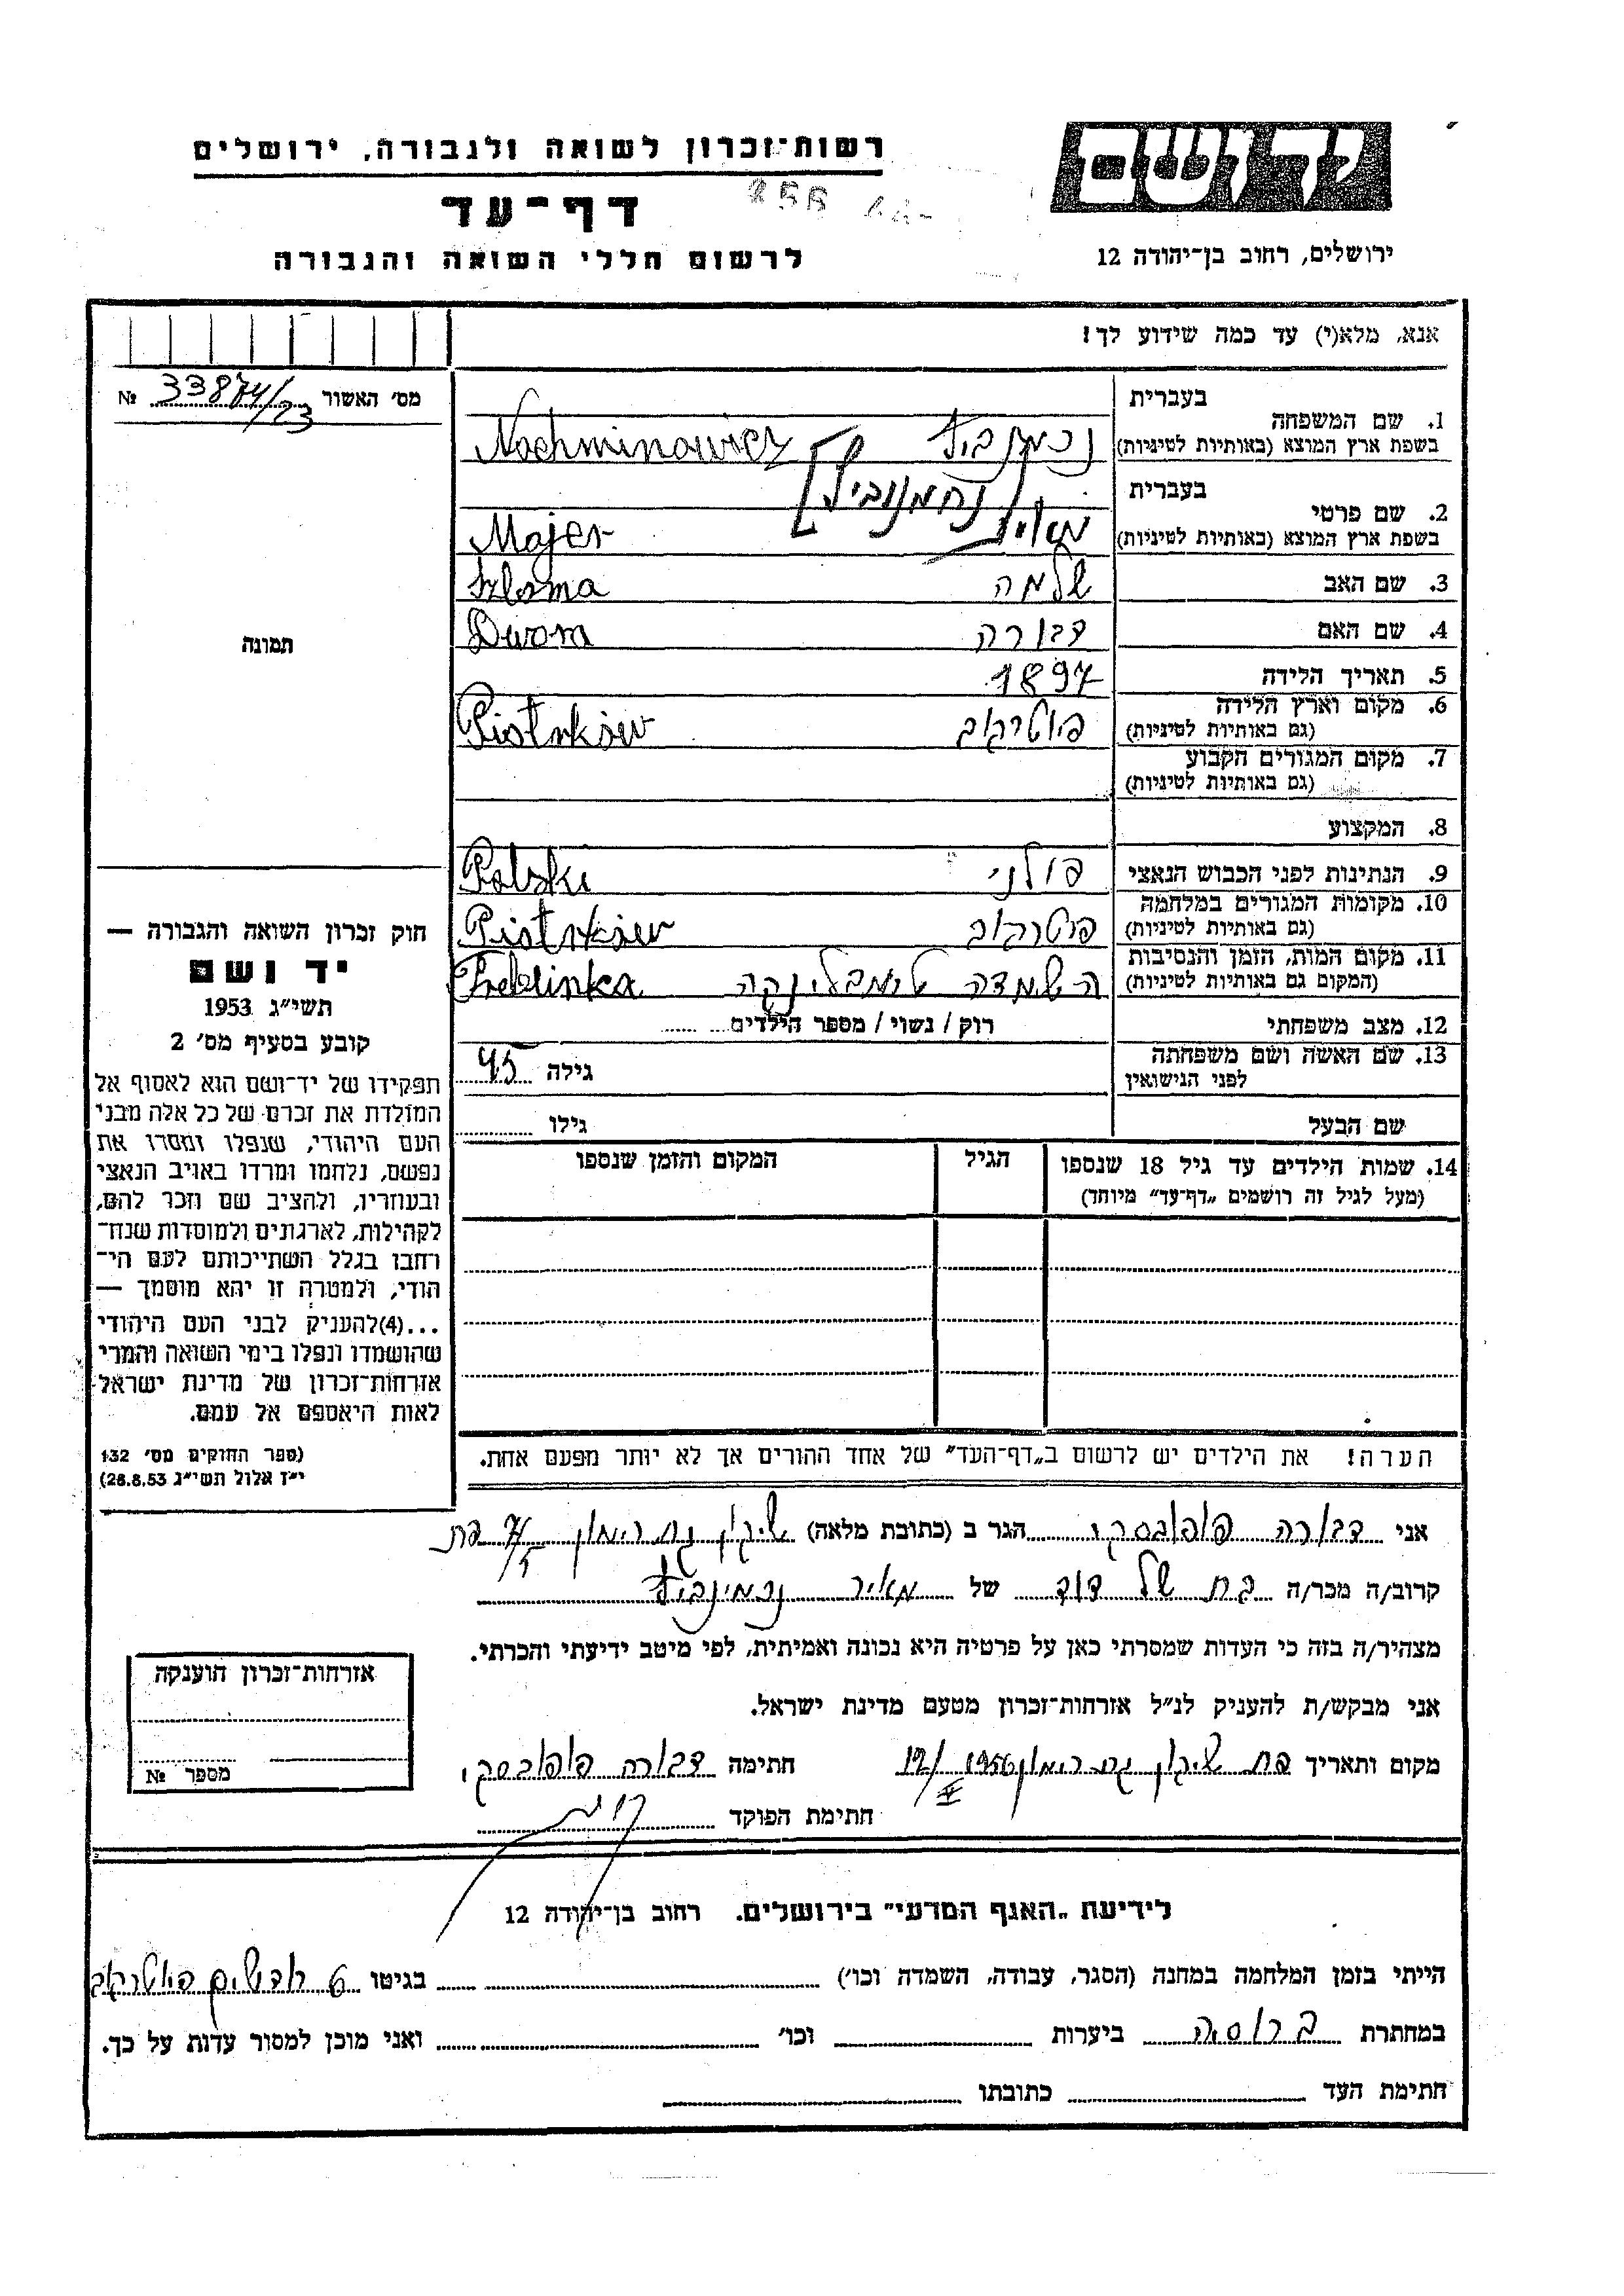 רשות־זכרון לשואה ולגבורה, ירושלים
יד ושם
דף־עד
לרשום חללי השואה והגבורה
ירושלים, רחוב בן־יהודה 12
אנא, מלא(י) עד כמה שידוע לך!
מס׳ האשור № 33874/23
תמונה
1. שם המשפחה
בעברית
בשפת ארץ המוצא (באותיות לטיניות)
Nachminowicz
[נחמנוביץ]
2. שם פרטי
בעברית
בשפת ארץ המוצא (באותיות לטיניות)
מאיר Majer
3. שם האב שלמה Szloma
4. שם האם דבורה Dwora
5. תאריך הלידה 1897
6. מקום וארץ הלידה
(גם באותיות לטיניות) פוטרקוב Piotrków
7. מקום המגורים הקבוע
(גם באותיות לטיניות)
8. המקצוע
9. הנתינות לפני הכבוש הנאצי פולני Polski
10. מקומות המגורים במלחמה
(גם באותיות לטיניות) פוטרקוב Piotrków
11. מקום המות, הזמן והנסיבות
(המקום גם באותיות לטיניות) השמדה Treblinka
12. מצב משפחתי רוק / נשוי / מספר הילדים
13. שם האשה ושם משפחתה
לפני הנישואין גילה 45
שם הבעל גילו
14. שמות הילדים עד גיל 18 שנספו
(מעל לגיל זה רושמים „דף־עד״ מיוחד)
הגיל
המקום והזמן שנספו
הערה! את הילדים יש לרשום ב„דף־העד״ של אחד ההורים אך לא יותר מפעם אחת.
חוק זכרון השואה והגבורה —
יד ושם
תשי״ג 1953
קובע בסעיף מס׳ 2
תפקידו של יד־ושם הוא לאסוף אל
המולדת את זכרם של כל אלה מבני
העם היהודי, שנפלו ומסרו את
נפשם, נלחמו ומרדו באויב הנאצי
ובעוזריו, ולהציב שם וזכר להם,
לקהילות, לארגונים ולמוסדות שנח־
רחבו בגלל השתייכותם לעם הי־
הודי, ולמטרה זו יהא מוסמך —
...(4)להעניק לבני העם היהודי
שהושמדו ונפלו בימי השואה והמרי
אזרחות־זכרון של מדינת ישראל
לאות היאספם אל עמם.
(ספר החוקים מס׳ 132
י״ז אלול תשי״ג 28.8.53)
אני דבורה פולובסקי הגר ב (כתובת מלאה) שיכון גת רימון
קרוב/ה מכר/ה בת של דוד של מאיר נכמינביץ
מצהיר/ה בזה כי העדות שמסרתי כאן על פרטיה היא נכונה ואמיתית, לפי מיטב ידיעתי והכרתי.
אני מבקש/ת להעניק לנ״ל אזרחות־זכרון מטעם מדינת ישראל.
מקום ותאריך שיכון גת רימון 1956 חתימה דבורה פולובסקי
חתימת הפוקד
אזרחות־זכרון הוענקה
מספר №
לידיעת „האגף המדעי״ בירושלים. רחוב בן־יהודה 12
הייתי בזמן המלחמה במחנה (הסגר, עבודה, השמדה וכו׳) בגיטו
במחתרת ברוסיה ביערות וכו׳ ואני מוכן למסור עדות על כך.
חתימת העד כתובתו